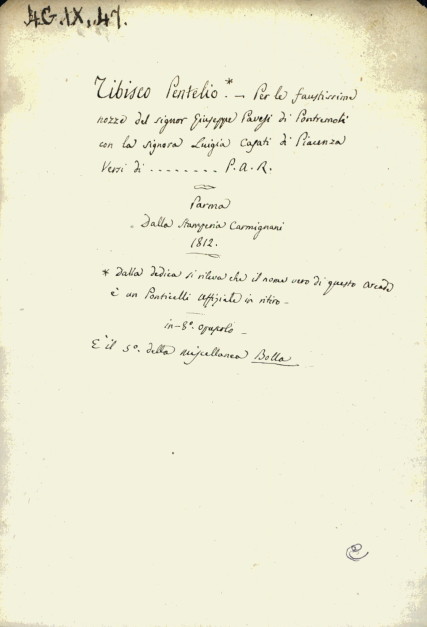 AG.IX,47.
Tibisco Pentelio.* — Per le faustissime
nozze del signor Giuseppe Pavesi di Pontremoli
con la signora Luigia Casati di Piacenza
Versi di ........ P.A.R.
Parma
Dalla Stamperia Carmignani
1812.
* Dalla dedica si rileva che il nome vero di questo Arcade
è un Ponticelli Uffiziale in ritiro —
in-8.° opuscolo —
È il 5.° della Miscellanea Bolla